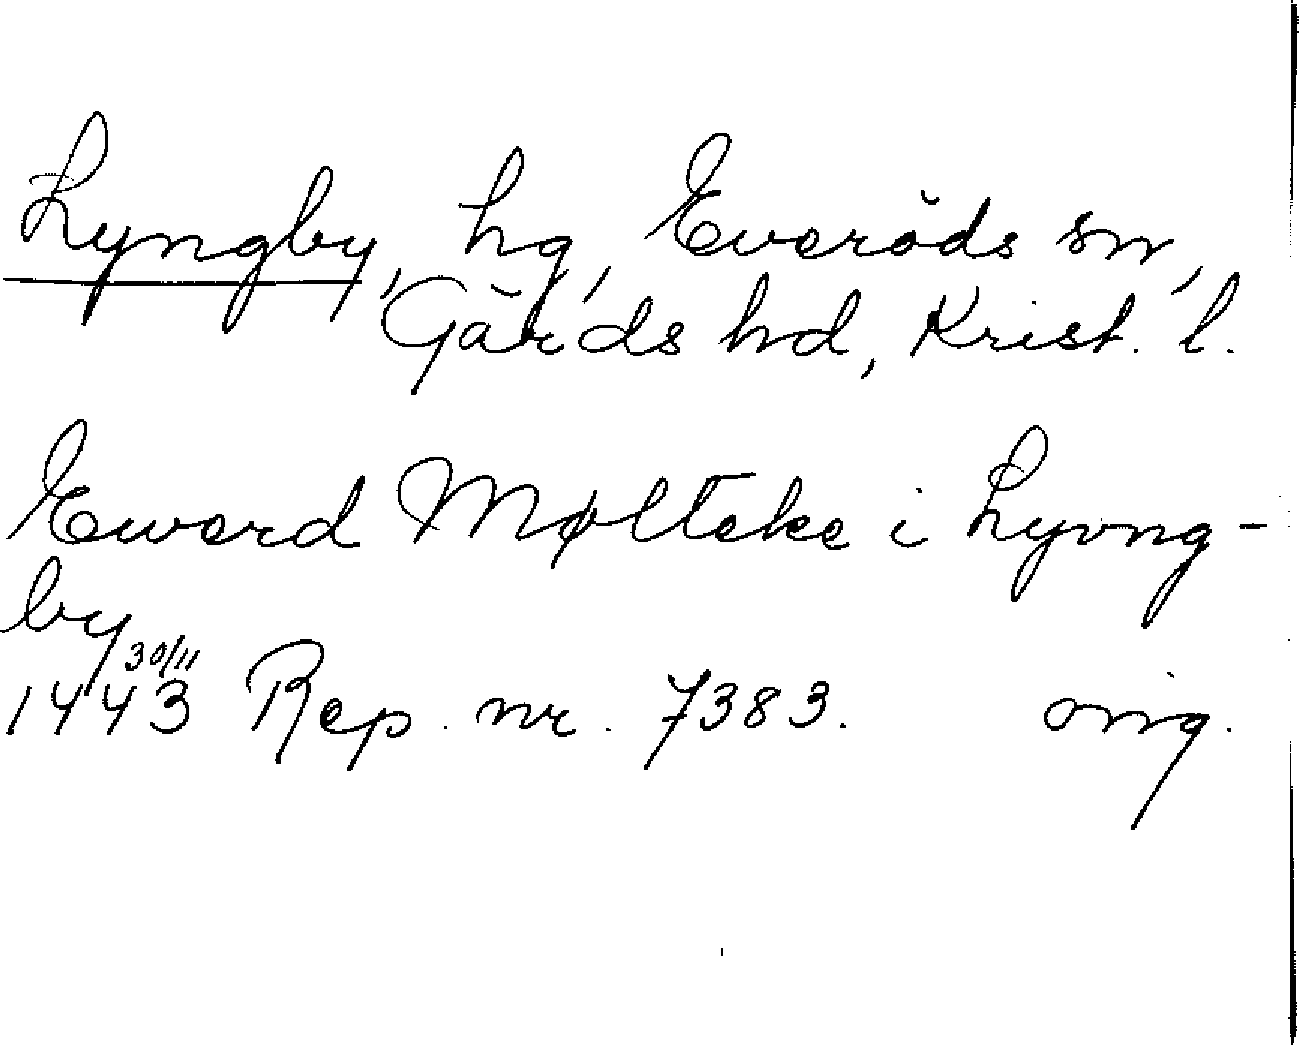 Lyngby, hg, Everöds sn,
Gärds hd, Krist. l.
Eword Mølteke i Lyvng-
by
1443 30/11 Rep. nr. 7383. orig.